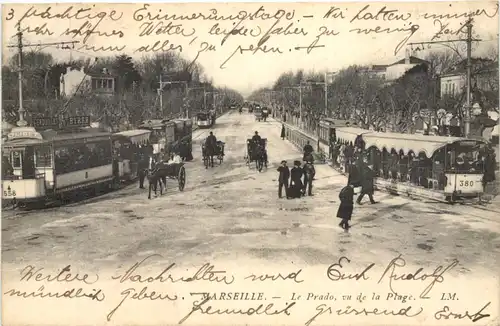 3 prächtige Erinnerungstage. - Wir hatten immer
sehr schönes Wetter, leider aber zu wenig Zeit um
alles zu sehen.
BYRRH
558
380
Weitere Nachricht wird Euch Rudolf
mündlich geben.
MARSEILLE. - Le Prado, vu de la Plage. - LM.
freundlich grüssend